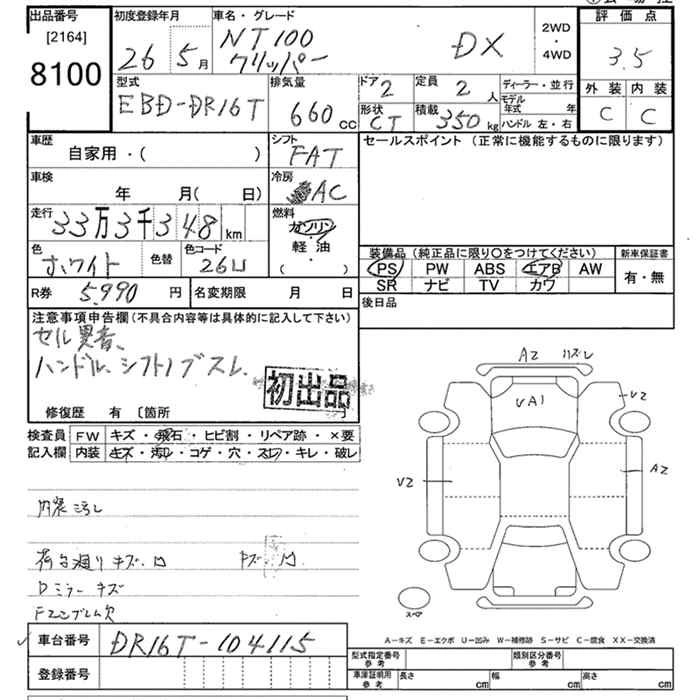 出品番号
[2164]
8100
初度登録年月
26 5月
車名・グレード
NT100
クリッパー
DX
2WD
・
4WD
評価点
3.5
外装 内装
C C
型式
EBD-DR16T
排気量
660 cc
ドア
2
定員
2 人
形状
CT
積載
350 kg
ディーラー・並行
モデル年式 年
ハンドル 左・右
車歴
自家用・( )
シフト
FAT
車検
年 月( 日)
冷房
AC
走行
33万3千348 km
燃料
ガソリン
軽・油
( )
色
ホワイト
色替
色コード
26U
R券 5,990 円
名変期限 月 日
セールスポイント (正常に機能するものに限ります)
装備品 (純正品に限り○をつけてください)
PS PW ABS エアB AW
SR ナビ TV カワ
新車保証書
有・無
後日品
注意事項申告欄(不具合内容等は具体的に記入して下さい)
セル異音、
ハンドル、シフトノブスレ、
初出品
修復歴 有 〔箇所 〕
検査員記入欄
FW キズ・飛石・ヒビ割・リペア跡・×要
内装 キズ・汚レ・コゲ・穴・スレ・キレ・破レ
内装汚レ
荷台廻りキズ、凹
Dミラーキズ
Fエンブレム欠
A2 ハズレ
UA1
U2
A2
U2
スペア
A-キズ E-エクボ U-凹み W-補修跡 S-サビ C-腐食 XX-交換済
車台番号 DR16T-104115
登録番号
型式指定番号
参考
類別区分番号
参考
車庫証明用
参考
長さ cm 幅 cm 高さ cm